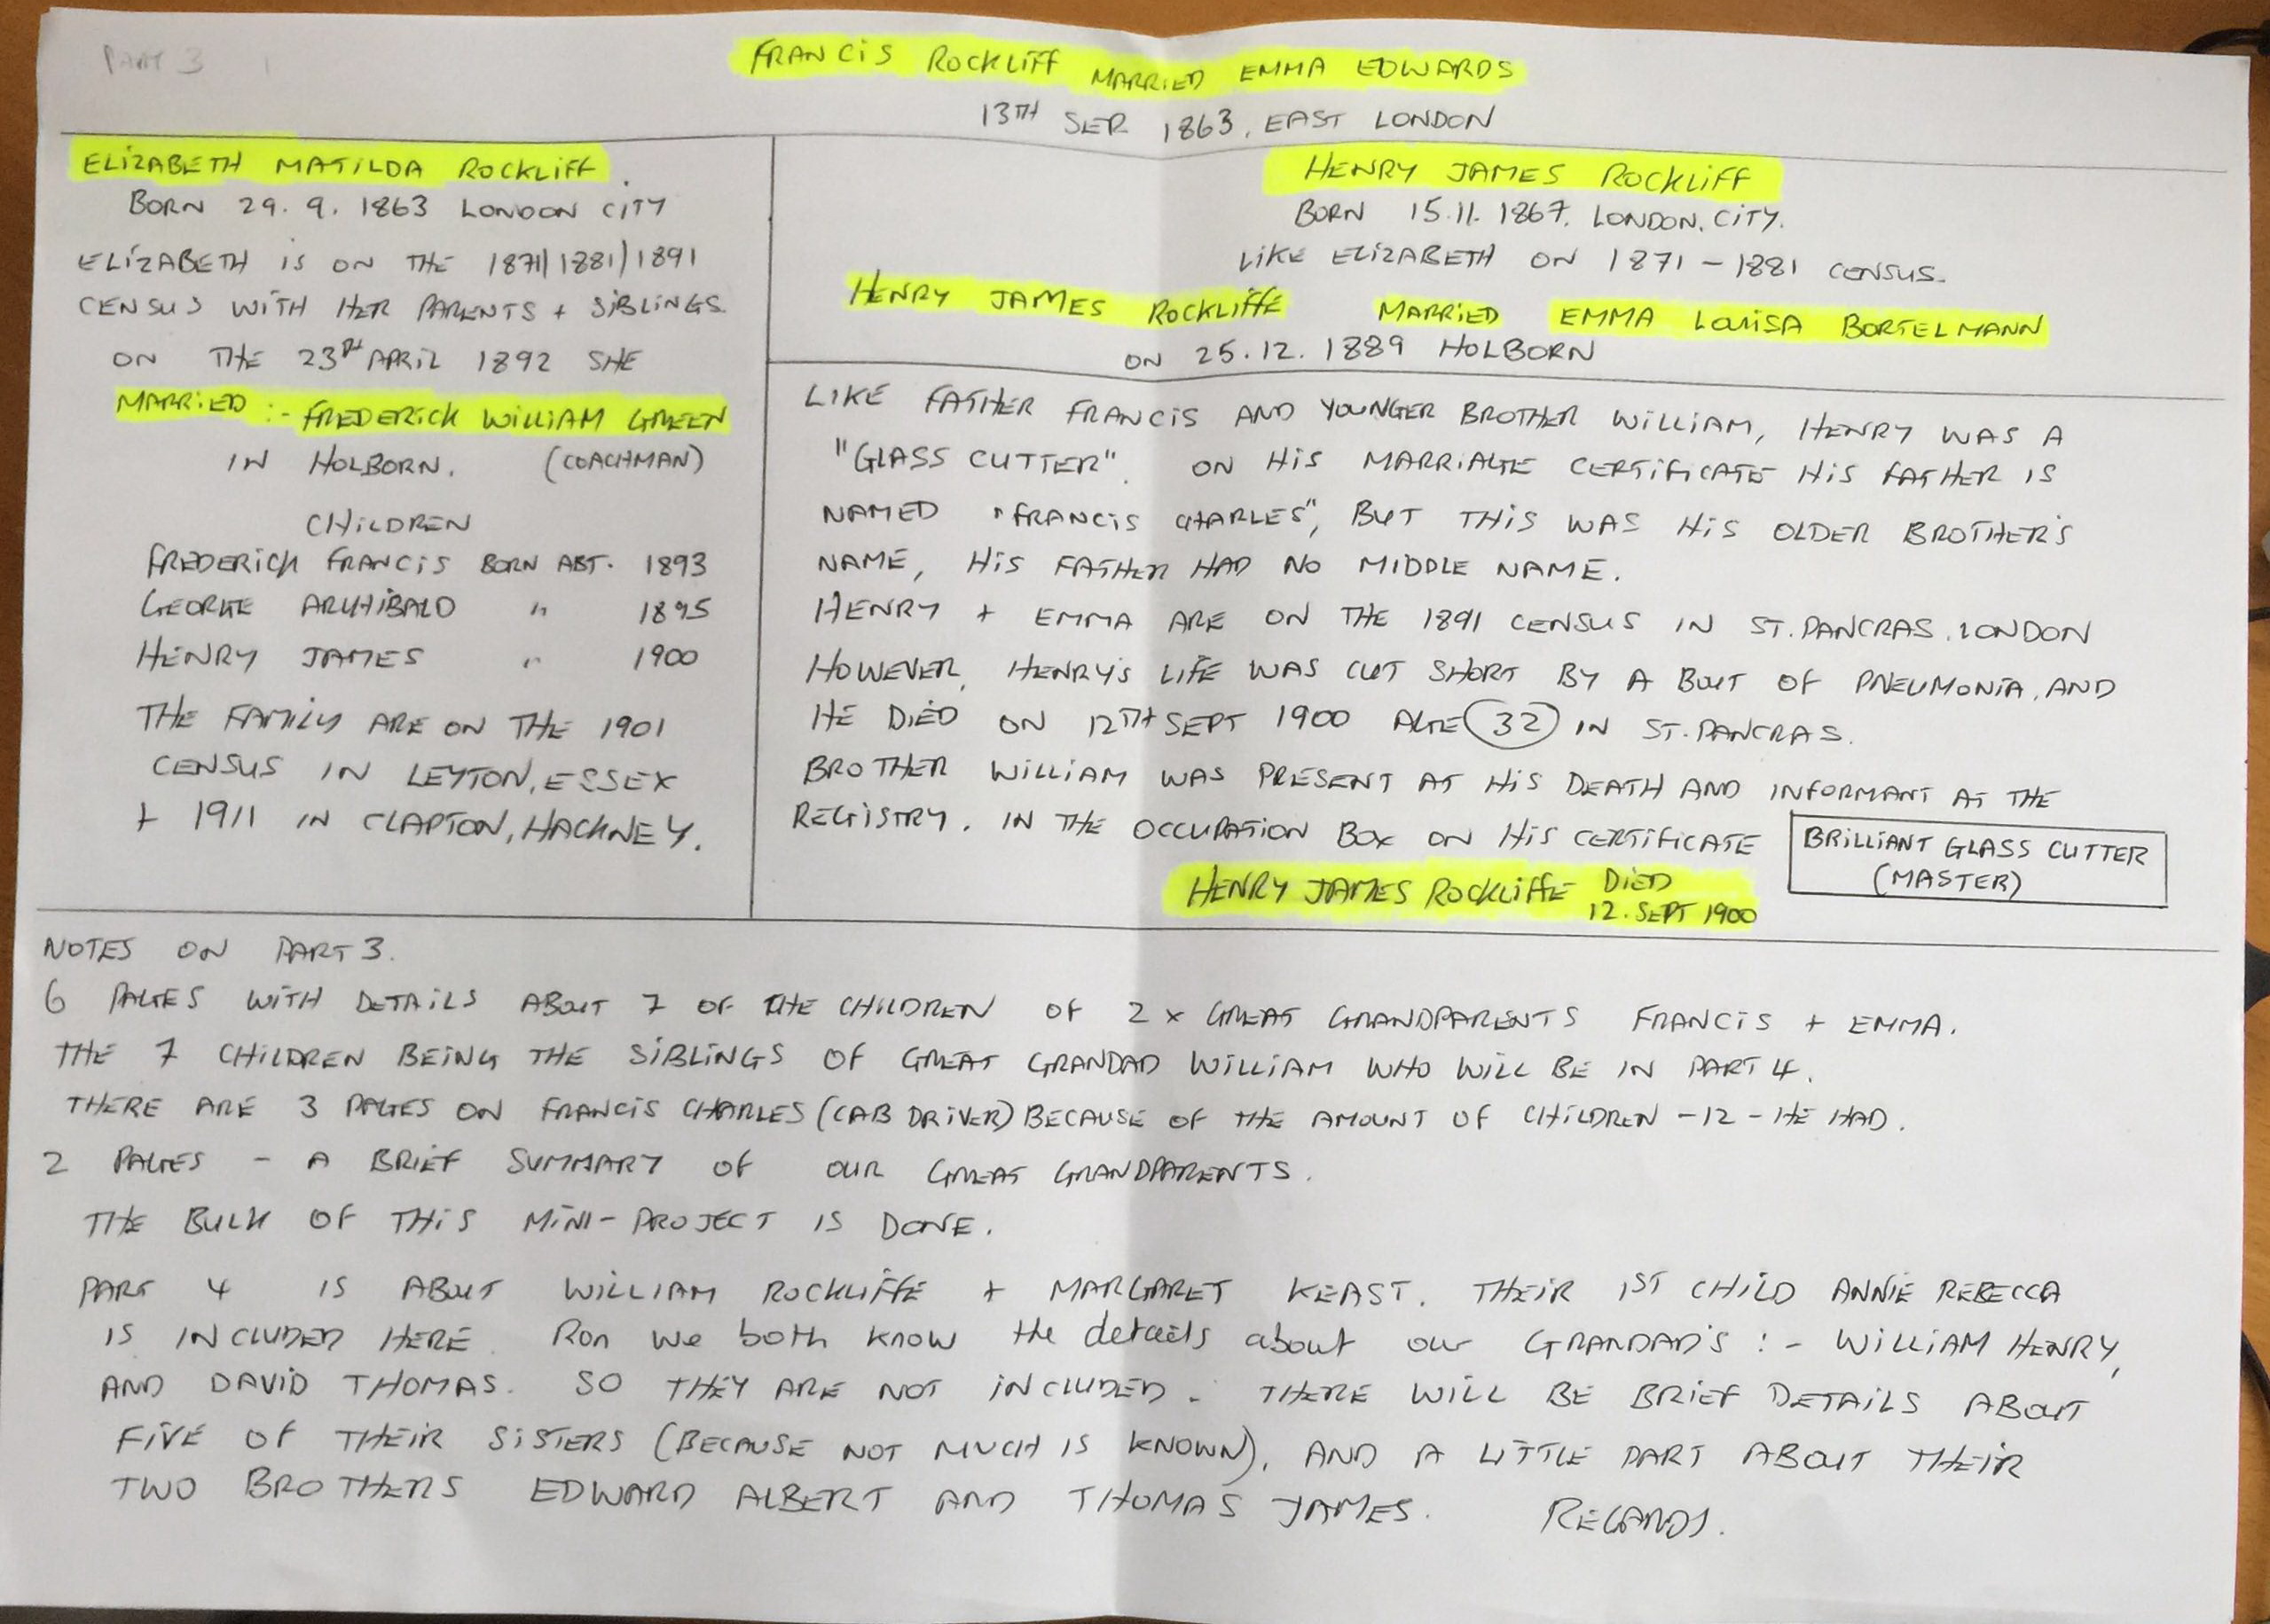 PART 3 1
FRANCIS ROCKLIFF MARRIED EMMA EDWARDS
13TH SEP 1863, EAST LONDON
ELIZABETH MATILDA ROCKLIFF.
BORN 29.9.1863 LONDON CITY
ELIZABETH IS ON THE 1871/1881/1891
CENSUS WITH HER PARENTS + SIBLINGS
ON THE 23RD APRIL 1892 SHE
MARRIED :- FREDERICK WILLIAM GREEN
IN HOLBORN. (COACHMAN)
CHILDREN
FREDERICK FRANCIS BORN ABT. 1893
GEORGE ARCHIBALD " 1895
HENRY JAMES " 1900
THE FAMILY ARE ON THE 1901
CENSUS IN LEYTON, ESSEX
+ 1911 IN CLAPTON, HACKNEY.
HENRY JAMES ROCKLIFF
BORN 15.11.1867. LONDON, CITY.
LIKE ELIZABETH ON 1871 - 1881 CENSUS.
HENRY JAMES ROCKLIFFE MARRIED EMMA LOUISA BORTELMANN
ON 25.12.1889 HOLBORN
LIKE FATHER FRANCIS AND YOUNGER BROTHER WILLIAM, HENRY WAS A
"GLASS CUTTER". ON HIS MARRIAGE CERTIFICATE HIS FATHER IS
NAMED "FRANCIS CHARLES", BUT THIS WAS HIS OLDER BROTHER'S
NAME, HIS FATHER HAD NO MIDDLE NAME.
HENRY + EMMA ARE ON THE 1891 CENSUS IN ST. PANCRAS. LONDON
HOWEVER, HENRY'S LIFE WAS CUT SHORT BY A BOUT OF PNEUMONIA, AND
HE DIED ON 12TH SEPT 1900 AGE 32 IN ST. PANCRAS.
BROTHER WILLIAM WAS PRESENT AT HIS DEATH AND INFORMANT AT THE
REGISTRY. IN THE OCCUPATION BOX ON HIS CERTIFICATE
BRILLIANT GLASS CUTTER
(MASTER)
HENRY JAMES ROCKLIFFE DIED
12. SEPT 1900
NOTES ON PART 3.
6 PAGES WITH DETAILS ABOUT 7 OF THE CHILDREN OF 2 x GREAT GRANDPARENTS FRANCIS + EMMA.
THE 7 CHILDREN BEING THE SIBLINGS OF GREAT GRANDAD WILLIAM WHO WILL BE IN PART 4.
THERE ARE 3 PAGES ON FRANCIS CHARLES (CAB DRIVER) BECAUSE OF THE AMOUNT OF CHILDREN - 12 - HE HAD.
2 PAGES - A BRIEF SUMMARY OF OUR GREAT GRANDPARENTS.
THE BULK OF THIS MINI-PROJECT IS DONE.
PART 4 IS ABOUT WILLIAM ROCKLIFFE + MARGARET KEAST. THEIR 1ST CHILD ANNIE REBECCA
IS INCLUDED HERE. Ron we both know the details about our GRANDAD'S :- WILLIAM HENRY,
AND DAVID THOMAS. SO THEY ARE NOT INCLUDED. THERE WILL BE BRIEF DETAILS ABOUT
FIVE OF THEIR SISTERS (BECAUSE NOT MUCH IS KNOWN), AND A LITTLE PART ABOUT THEIR
TWO BROTHERS EDWARD ALBERT AND THOMAS JAMES. REGARDS.